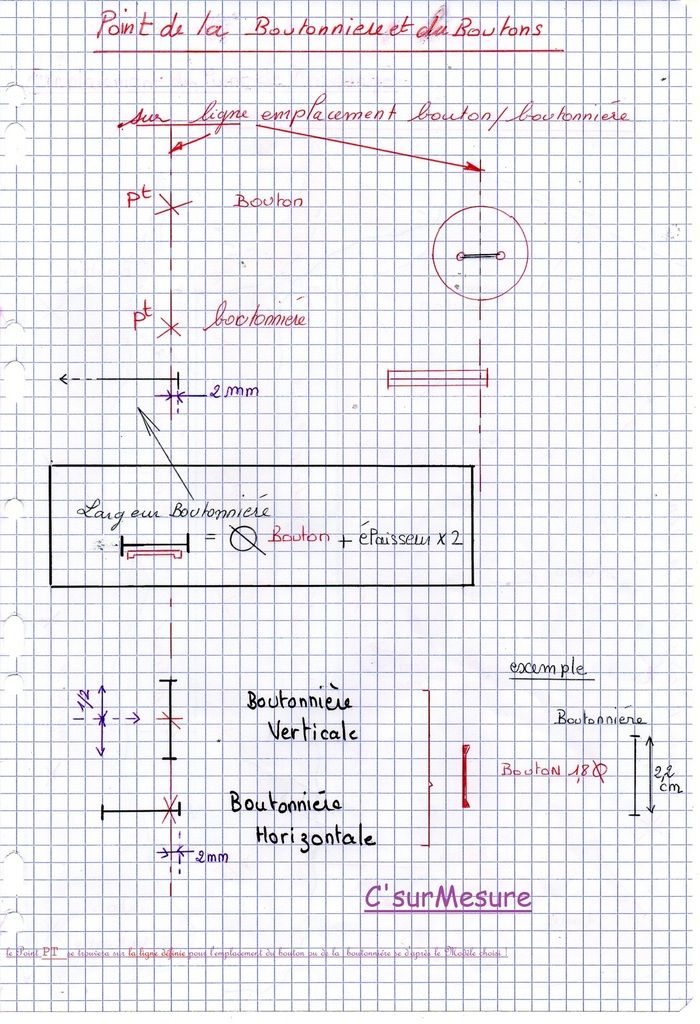 Point de la Boutonniere et du Boutons
sur ligne emplacement bouton/boutonniére
Pt Bouton
Pt boutonniére
2 mm
Largeur Boutonniéré
= Ø Bouton + épaisseur x 2
exemple
1/2
Boutonnière
Verticale
Boutonniére
Bouton 1,8 Ø
2,2
cm
Boutonniére
Horizontale
2mm
C'surMesure
le Point PT se trouvera sur la ligne définie pour l'emplacement du bouton ou de la boutonnière se d'après le Modèle choisi !